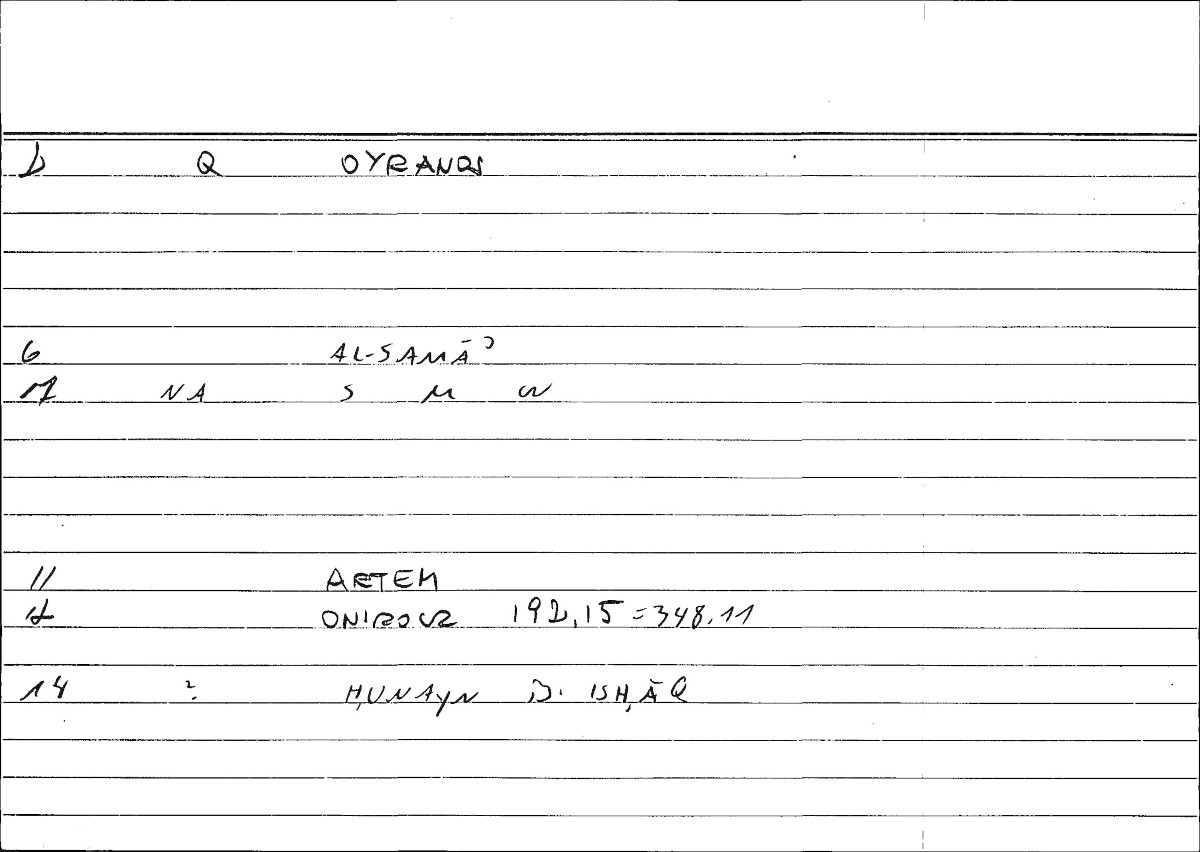 1 Q OYRANOS
6 AL-SAMĀʾ
7 NA S M W
11 ARTEM
12 ONIROCR 192,15 = 348.11
14 ? ḤUNAYN B. ISḤĀQ